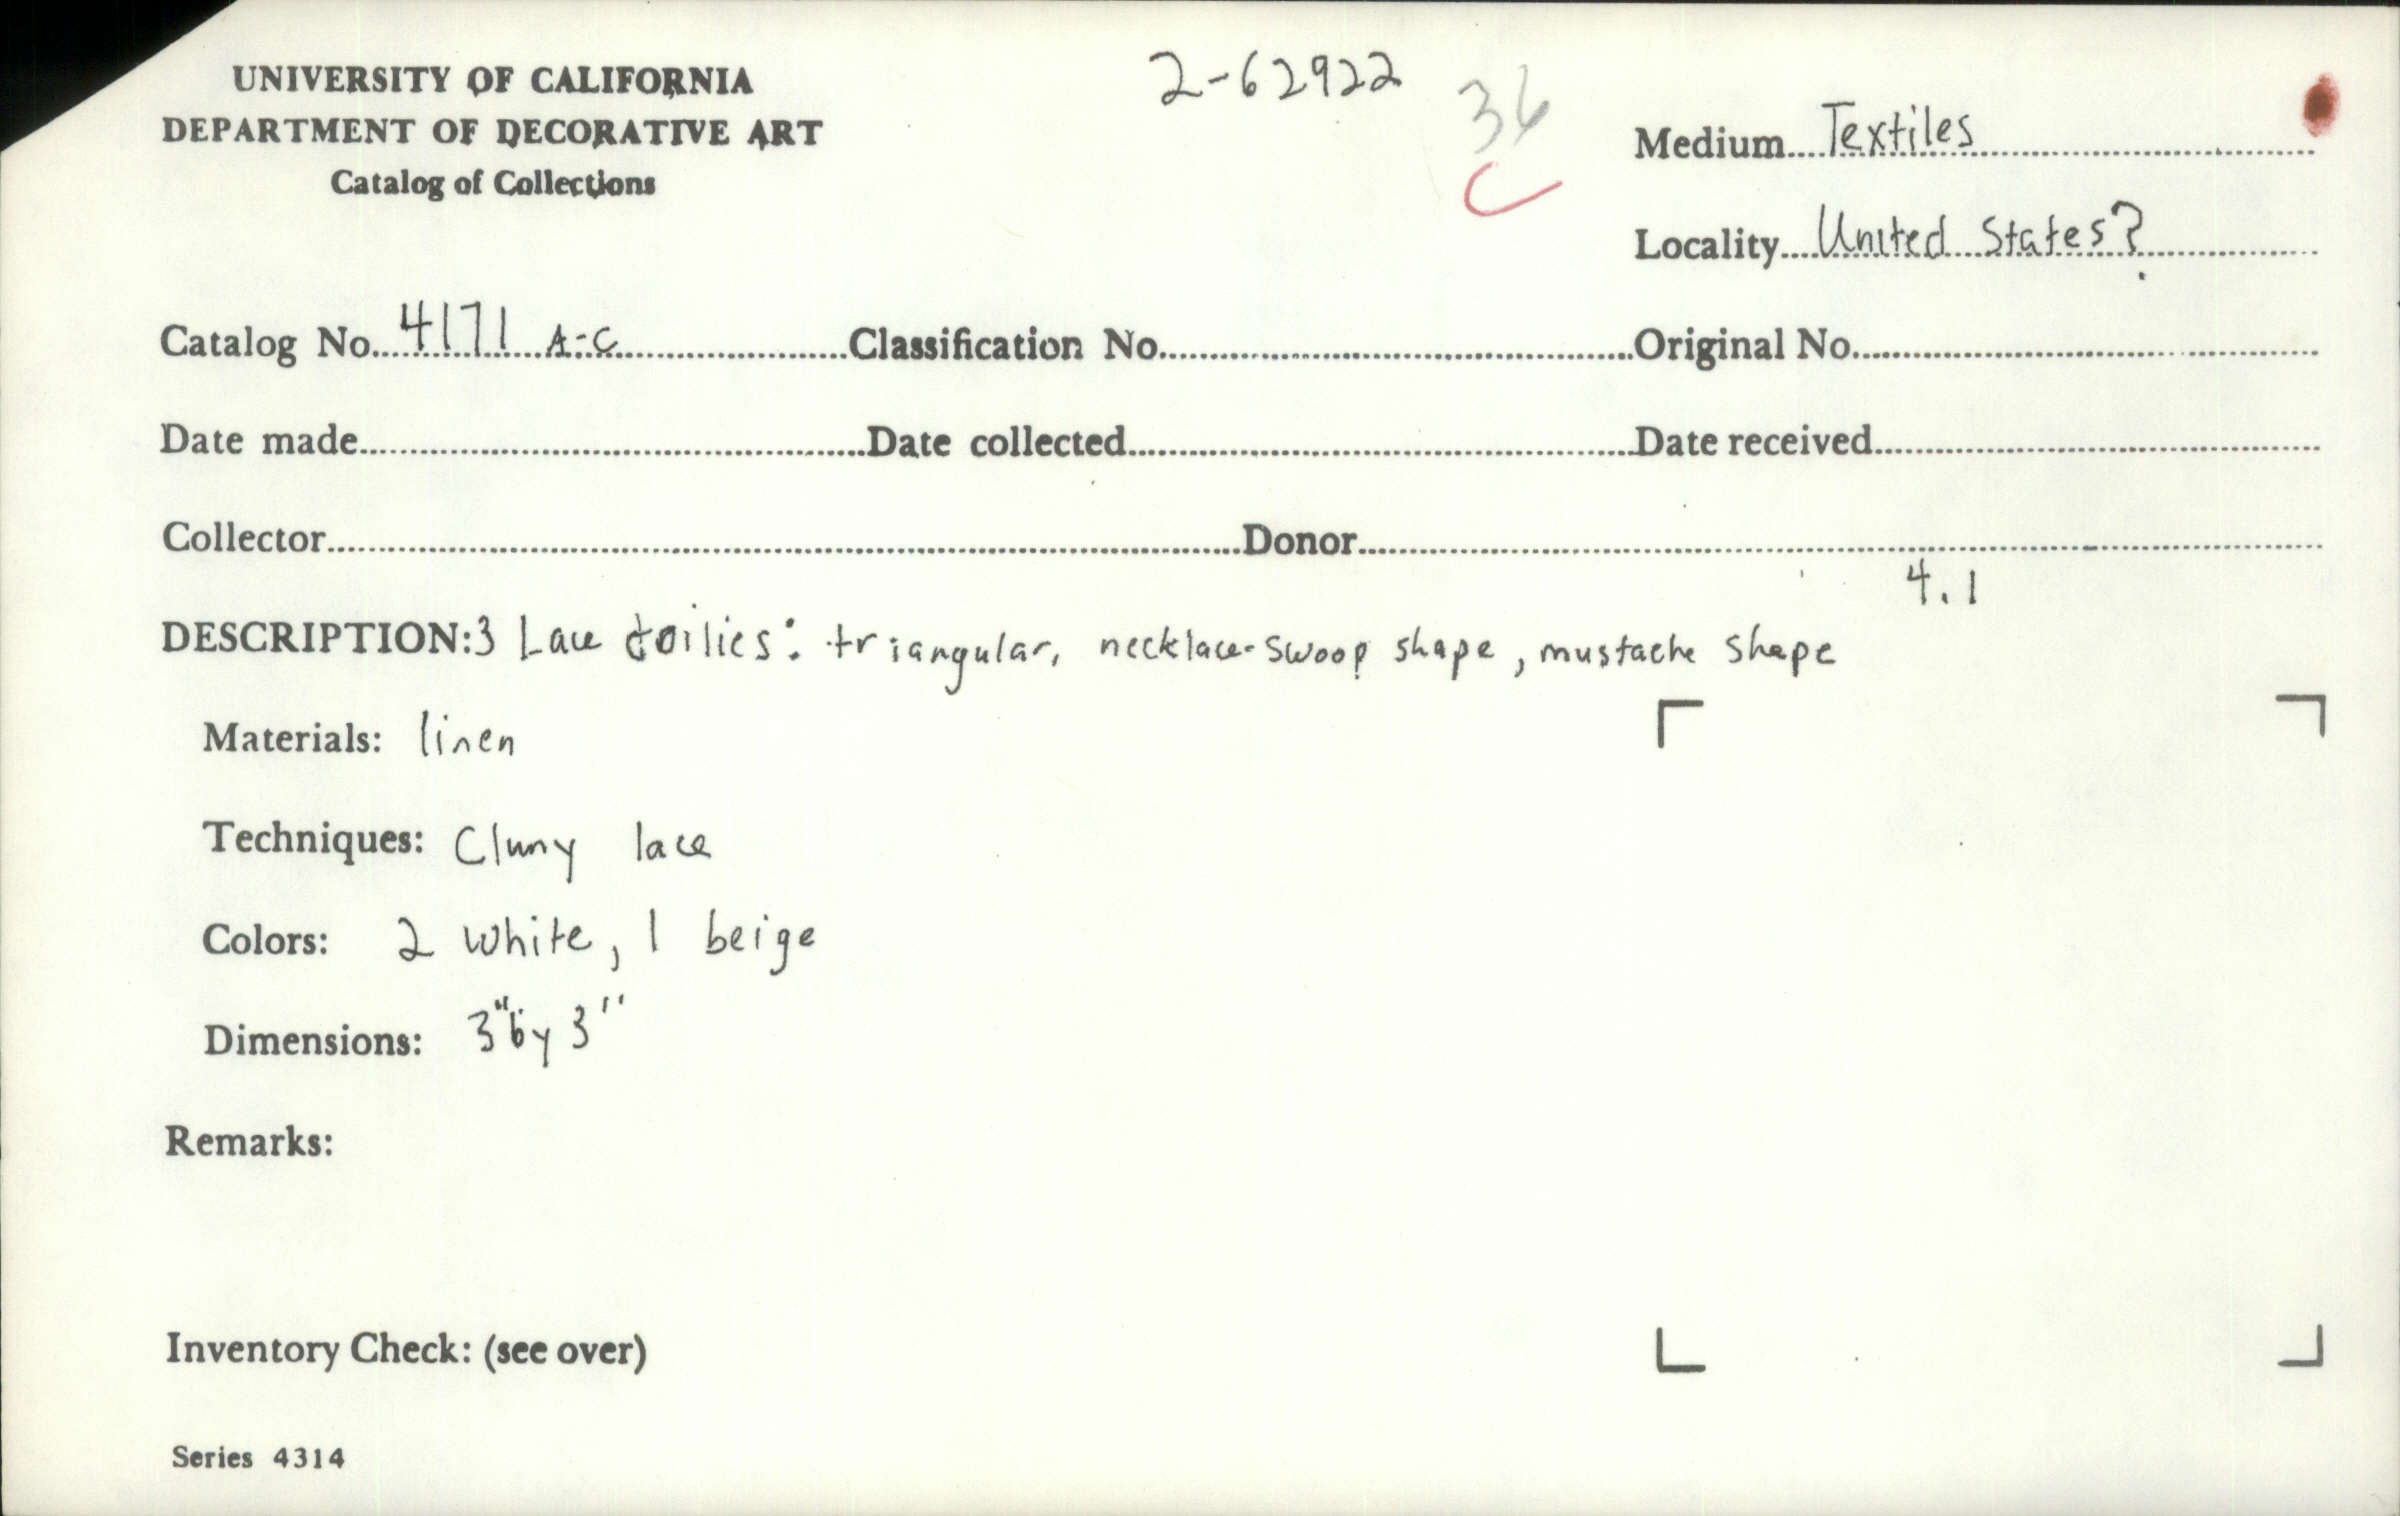 UNIVERSITY OF CALIFORNIA
DEPARTMENT OF DECORATIVE ART
Catalog of Collections
2-62922
36
C
Medium....Textiles
Locality....United States?
Catalog No....4171 A-C....Classification No....Original No....
Date made....Date collected....Date received....
Collector....Donor....
4.1
DESCRIPTION: 3 Lace doilies: triangular, necklace-swoop shape, mustache shape
Materials: linen
Techniques: Cluny lace
Colors: 2 white, 1 beige
Dimensions: 3" by 3"
Remarks:
Inventory Check: (see over)
Series 4314